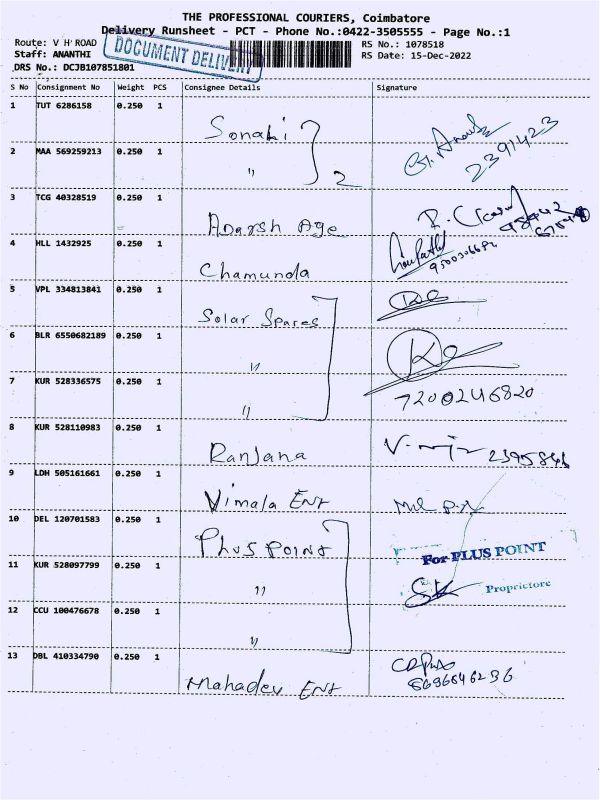 THE PROFESSIONAL COURIERS, Coimbatore
Delivery Runsheet - PCT - Phone No.:0422-3505555 - Page No.:1
Route: V H ROAD
RS No.: 1078518
Staff: ANANTHI
RS Date: 15-Dec-2022
DRS No.: DCJB107851801
DOCUMENT DELIVERY
S No Consignment No Weight PCS Consignee Details Signature
1 TUT 6286158 0.250 1 Sonaki
2 MAA 569259213 0.250 1 " 2 2391423
3 TCG 40328519 0.250 1 Adarsh Age
4 HLL 1432925 0.250 1 Chamunda
5 VPL 334813841 0.250 1 Solar Spares
6 BLR 6550682189 0.250 1 "
7 KUR 528336575 0.250 1 " 7200246820
8 KUR 528110983 0.250 1 Ranjana
9 LDH 505161661 0.250 1 Vimala Ent
10 DEL 120701583 0.250 1 Plus Point For PLUS POINT
11 KUR 528097799 0.250 1 " Proprietore
12 CCU 100476678 0.250 1 "
13 DBL 410334790 0.250 1 Mahadev Ent